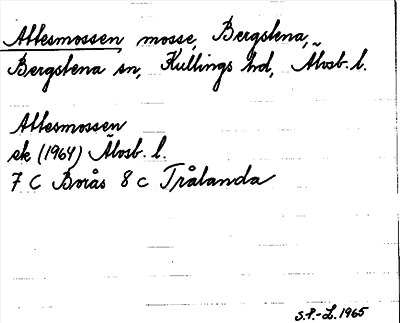 Attesmossen, mosse, Bergstena,
Bergstena sn, Kullings hd, Älvsb. l.
Attesmossen
ek (1964) Älvsb. l.
7 C Borås 8 c Trålanda
S.P.-L. 1965